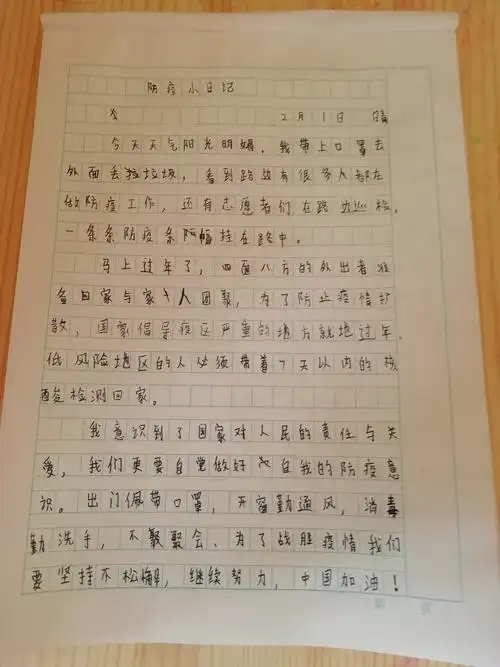 防疫小日记
2月1日 晴
今天天气阳光明媚，我带上口罩去
外面丢拉垃圾，看到路边有很多人都在
做防疫工作，还有志愿者们在路边巡检，
一条条防疫条幅挂在路中。
马上过年了，四面八方的外出者准
备回家与家人团聚，为了防止疫情扩
散，国家倡导疫区严重的地方就地过年
低风险地区的人必须带着7天以内的核
酸检测回家。
我意识到了国家对人民的责任与关
爱，我们更要自觉做好自我的防疫意
识。出门佩带口罩，开窗勤通风，消毒
勤洗手，不聚聚会、为了战胜疫情我们
要坚持不松懈，继续努力，中国加油！